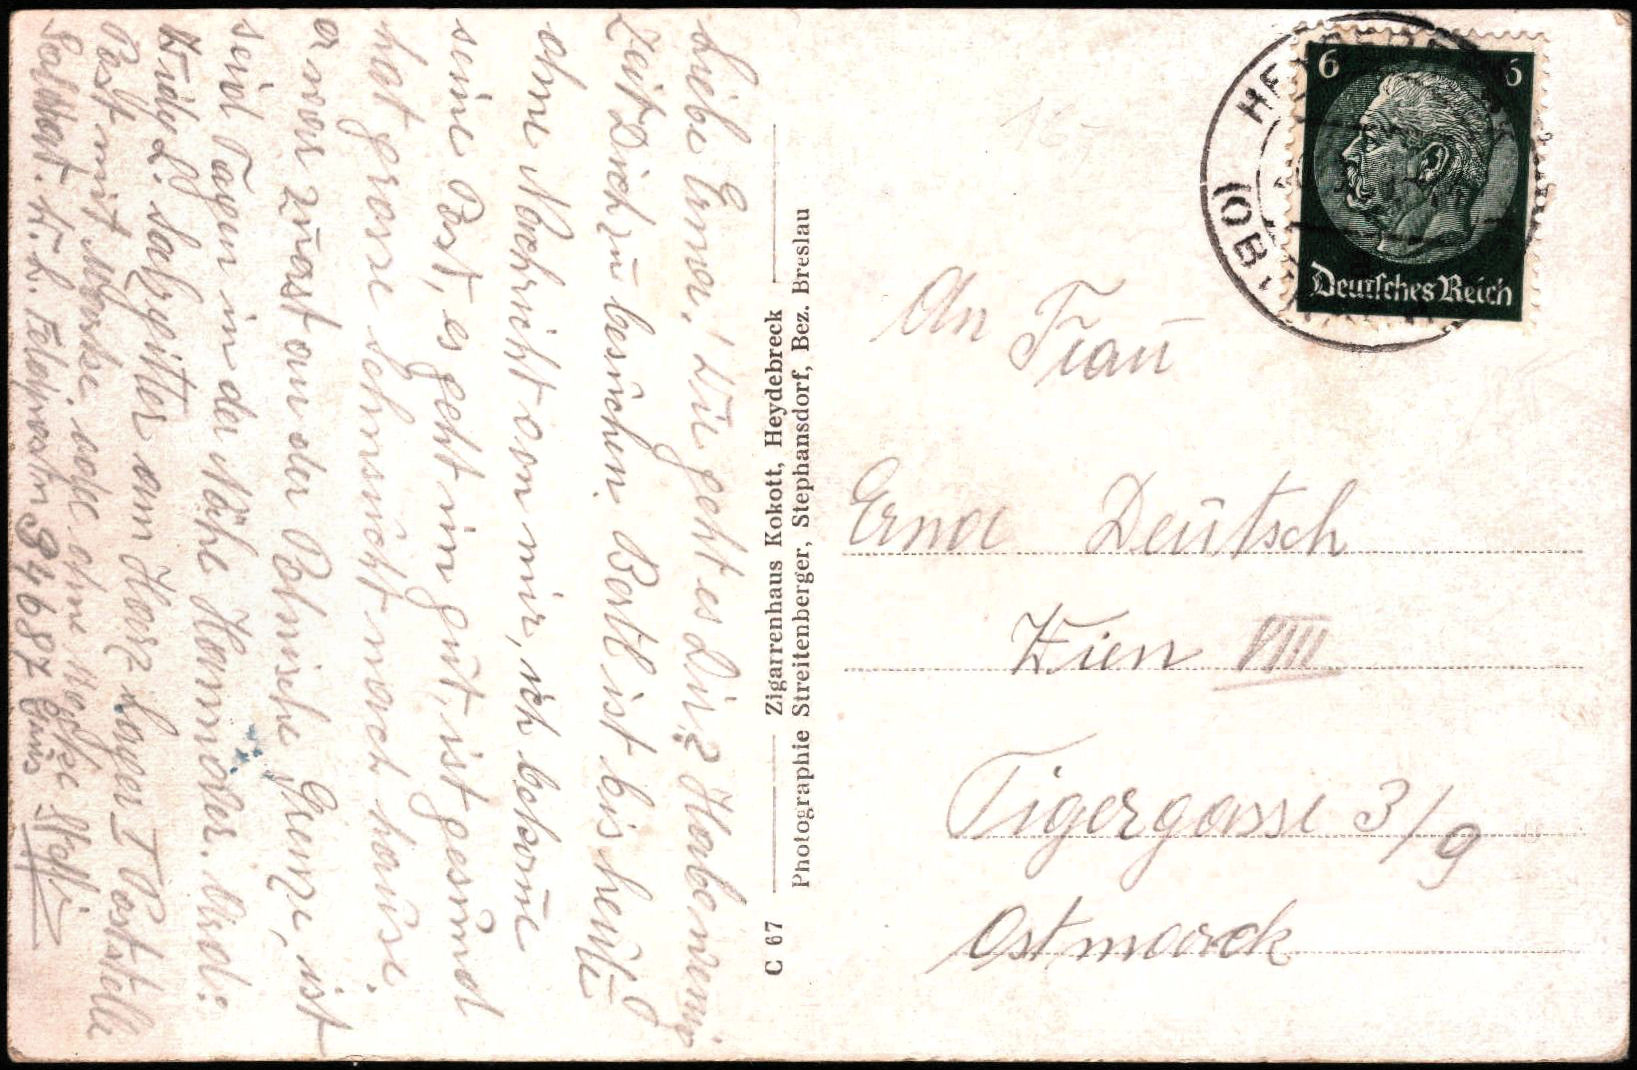 Liebe Erna! Wie geht es Dir? Habe wenig
Zeit Dich zu besuchen. Bertl ist bis heute
ohne Nachricht von mir, ich bekome
seine Post, es geht im gut, ist gesund
hat grosse sehnsucht nach hause.
er war zuast an der Polnische Grenze, ist
seid Tagen in der Nähe Hannover. Und:
Salzgitter am Harz Lager I Poststelle
Post mit
Soldat. Feldpostn 34687
C 67
Zigarrenhaus Kokott, Heydebreck
Photographie Streitenberger, Stephansdorf, Bez. Breslau
6 6
Deutsches Reich
An Frau
Erna Deutsch
Wien VIIII
Tigergasse 3/9
Ostmarck